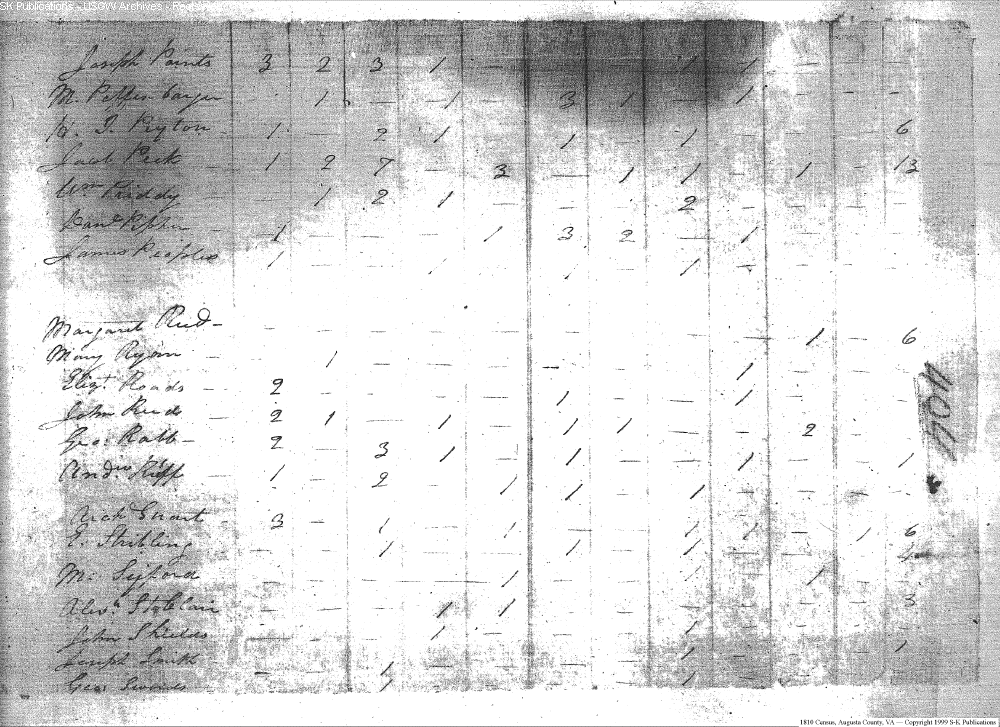 SK Publications - USGW Archives - Re
Joseph Points 3 2 3 1 — — — 1 1 — —
M. Peffenbarger — 1 — 1 — 3 1 — 1 — —
H. J. Peyton — 1 — 2 1 — 1 — 1 — — — 6
Jacob Peck 1 2 7 — 3 — 1 1 — 1 — 13
Wm Priddy — 1 2 1 — — — 2 — — — —
Danl 1 — — — 1 3 2 — 1 — — —
James Peoples 1 — — 1 — 1 — 1 — — — —
Margaret Reid — — — — — — — — — — 1 — 6
Mary Ryan — — 1 — — — — — — 1 — — —
Elizt. Roads — 2 — — — — 1 — — 1 — — —
John Reid 2 1 — 1 — 1 1 — — 2 — —
Geo. Rabb — 2 — 3 1 — 1 — — 1 — — 1
Andw. Ripp 1 — 2 — 1 1 — 1 — — — —
Arch Stuart — 3 — 1 — 1 — — 1 1 — 1 6
E. Stribling — — — 1 — — 1 — 1 — — —
M. Sifford — — — — 1 — — 1 — 1 — —
Alexr. St.Clair — — — 1 1 — — — — — — 3
John Shields — — — 1 — — — 1 — — — 1
Joseph Smith — — 1 — — — — 1 — — — —
Geo. Swoords — — 1 — — — — 1 — — — —
1810 Census, Augusta County, VA — Copyright 1999 S-K Publications